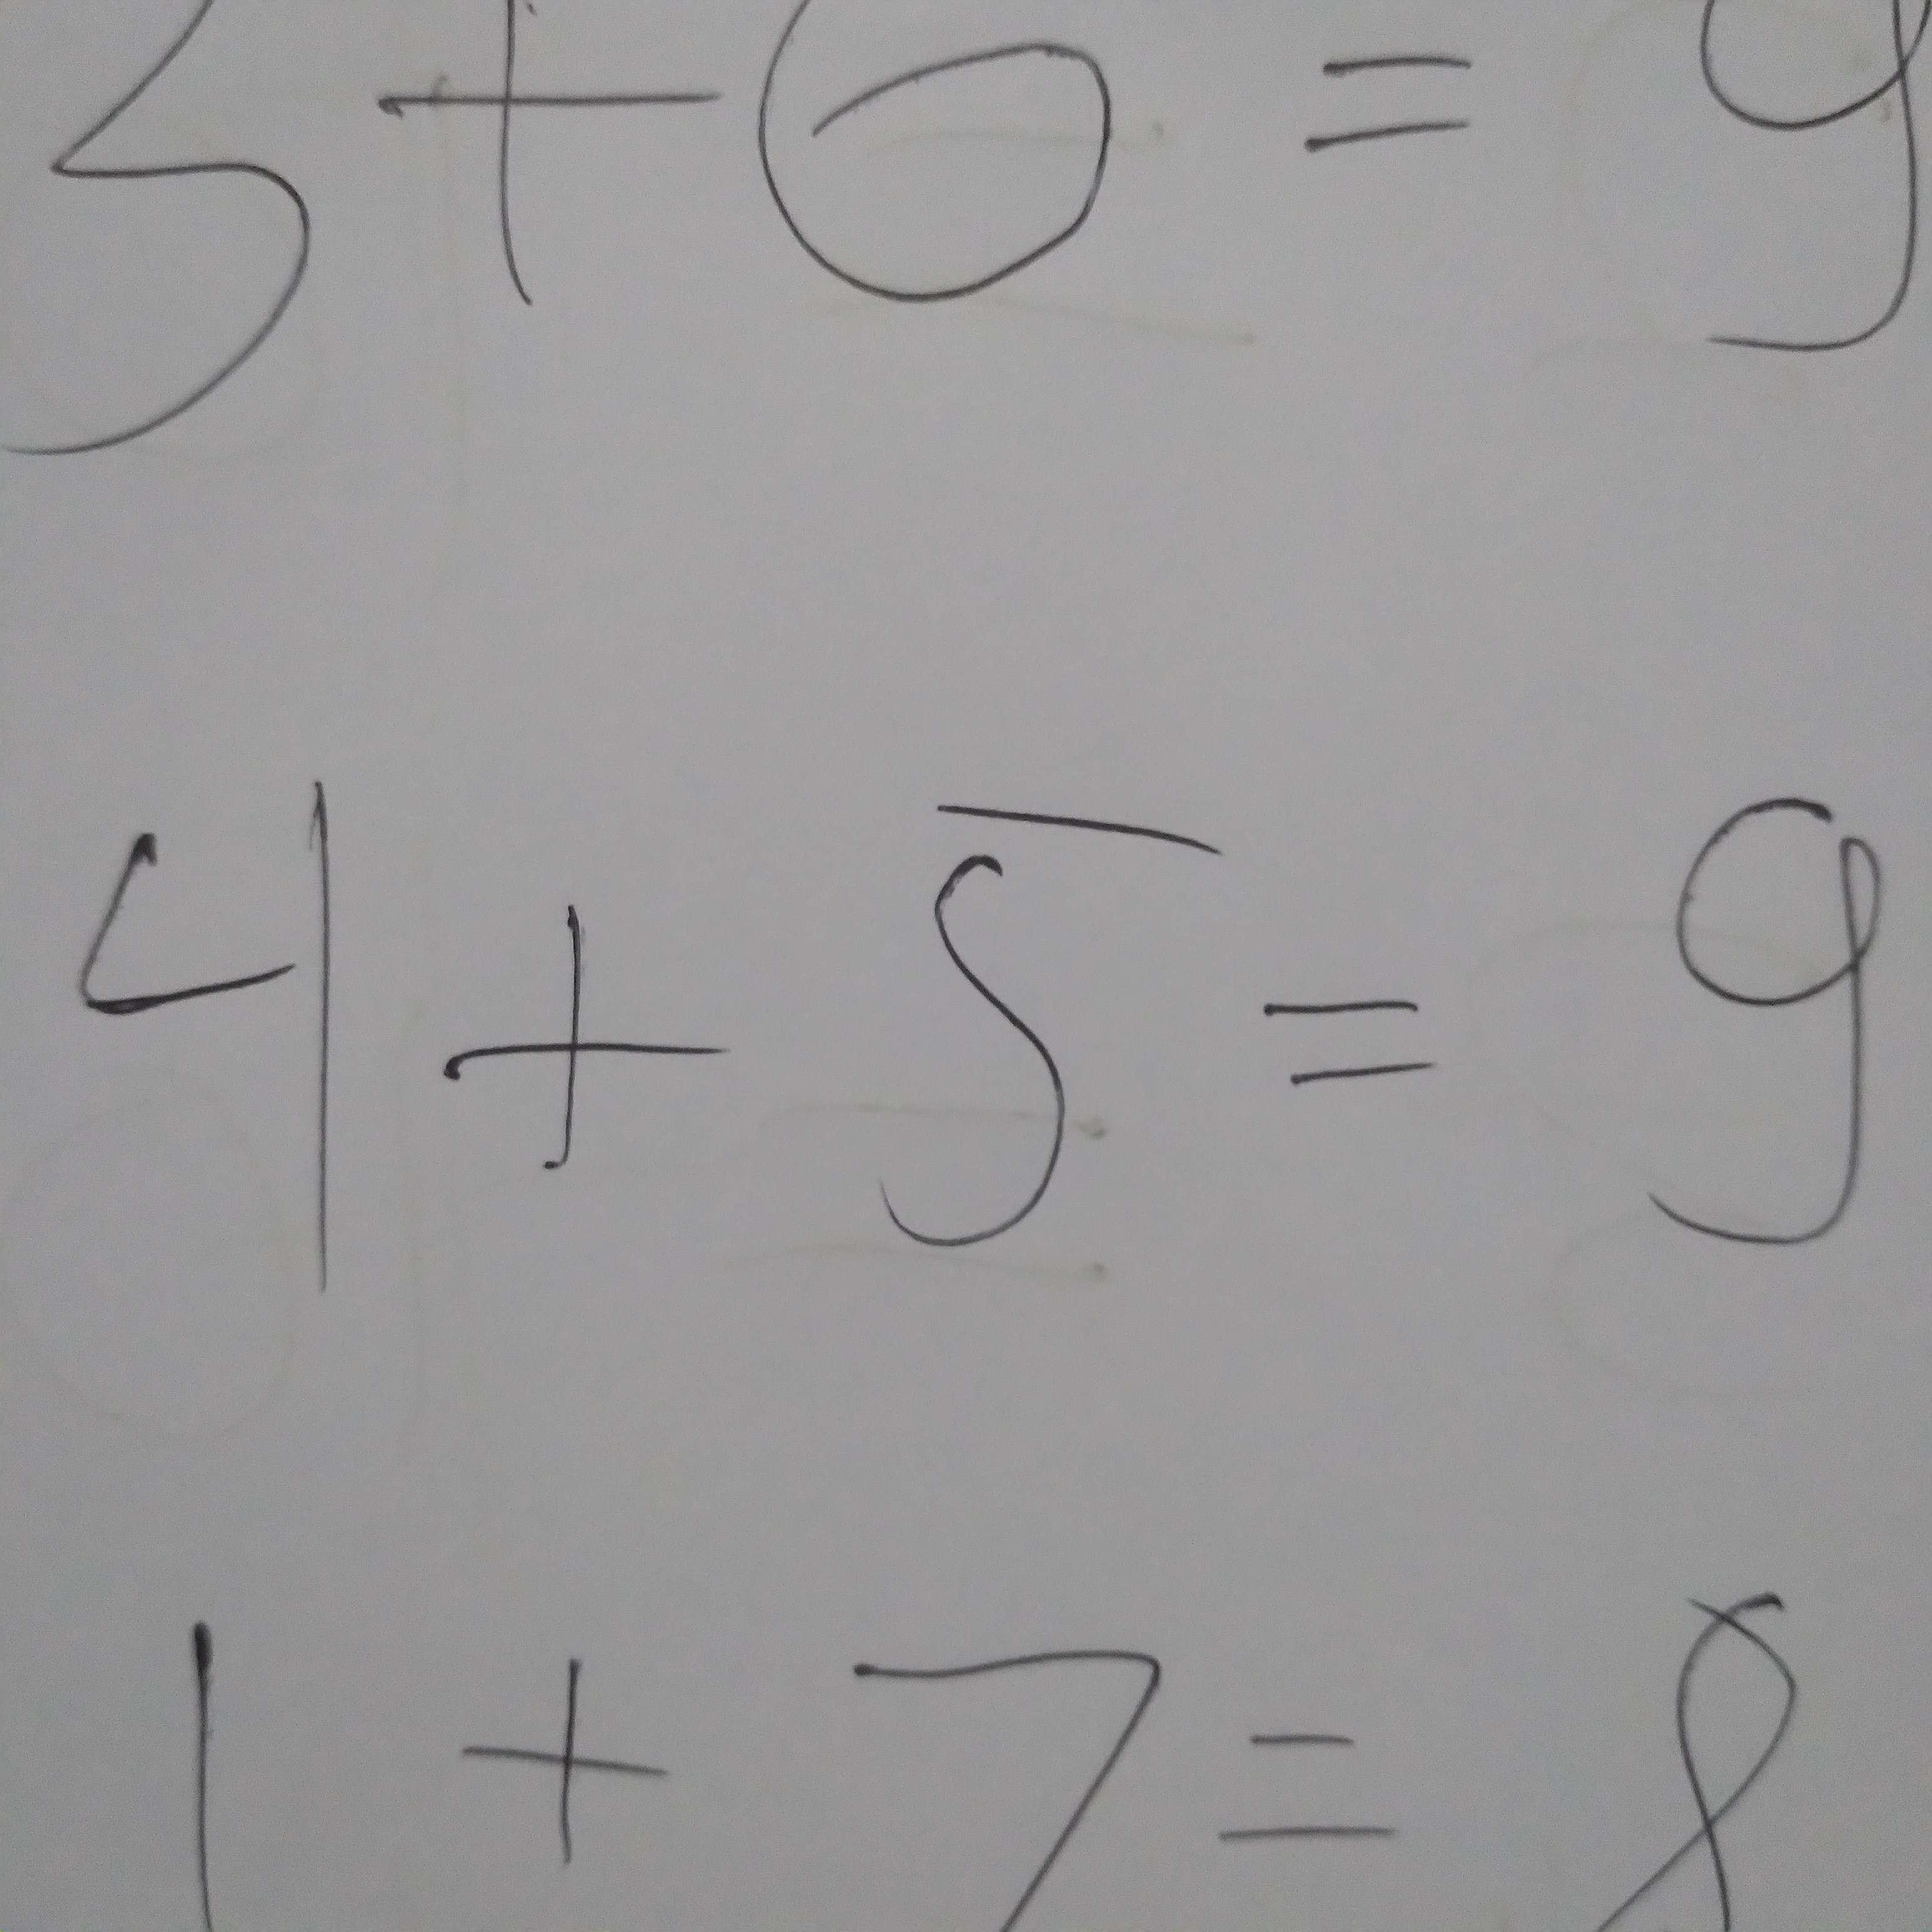 3+6=9
4+5=9
1+7=8